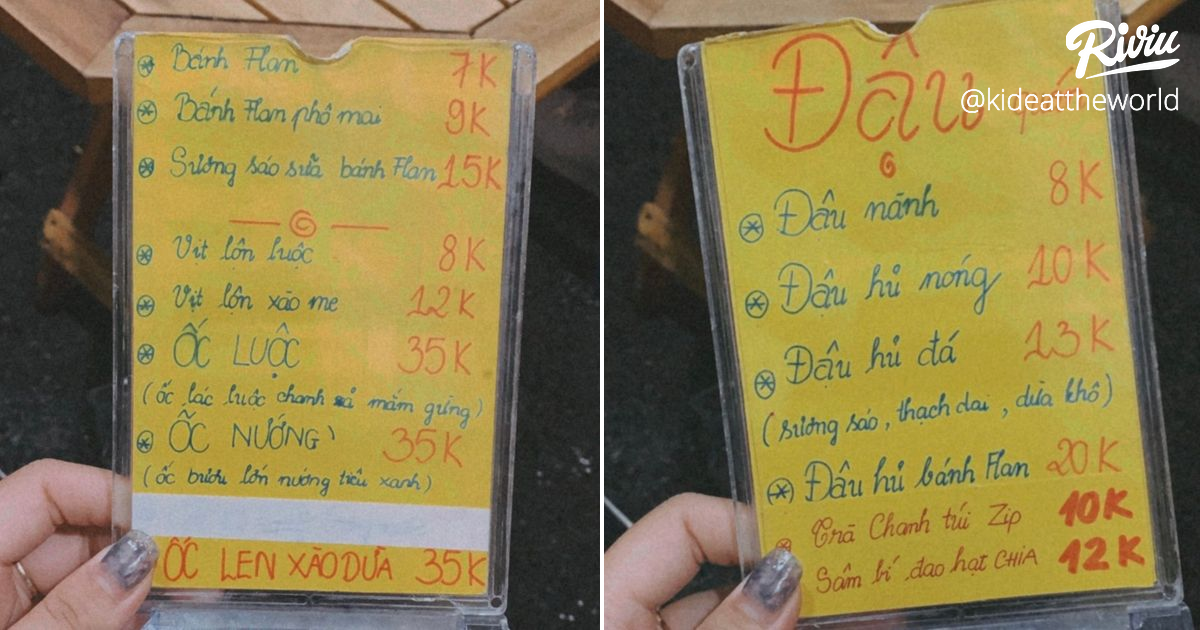 Bánh Flan 7K
Bánh Flan phô mai 9K
Sương sáo sữa bánh Flan 15K
Vịt lộn luộc 8K
Vịt lộn xào me 12K
ỐC LUỘC 35K
(ốc lác luộc chanh sả mắm gừng)
ỐC NƯỚNG 35K
(ốc bươu lớn nướng tiêu xanh)
ỐC LEN XÀO DỪA 35K
Riviu
@kideattheworld
Đậu quán
Đậu nành 8K
Đậu hủ nóng 10K
Đậu hủ đá 13K
(sương sáo, thạch dai, dừa khô)
Đậu hủ bánh Flan 20K
Trà Chanh túi Zip 10K
Sâm bí đao hạt CHIA 12K